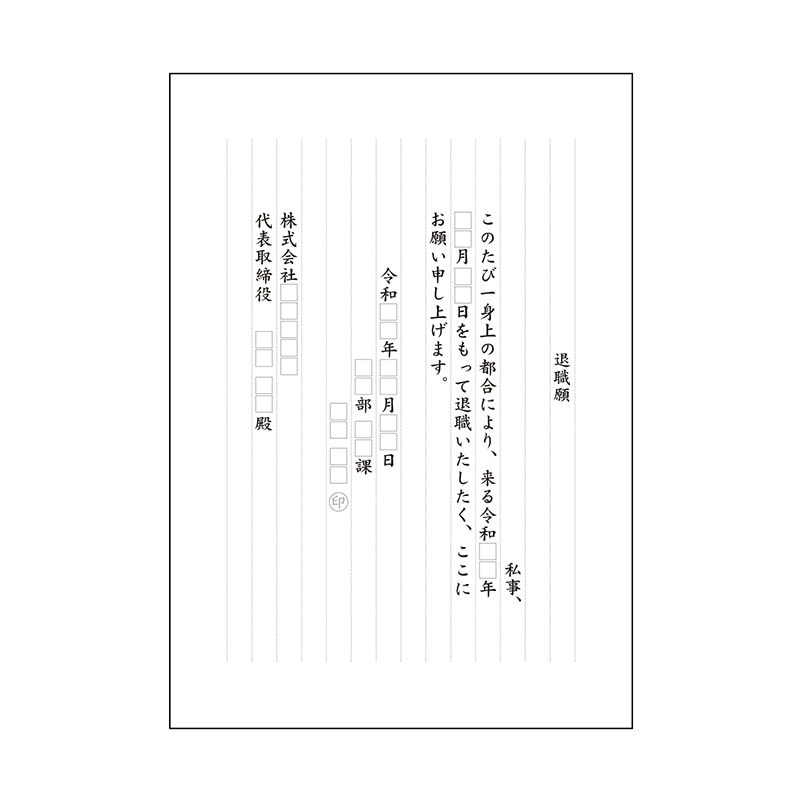 退職願
私事、
このたび一身上の都合により、来る令和□□年
□□月□□日をもって退職いたしたく、ここに
お願い申し上げます。
令和□□年□□月□□日
□□部 □□課
□□ □□ ㊞
株式会社□□□□□
代表取締役 □□ □□殿